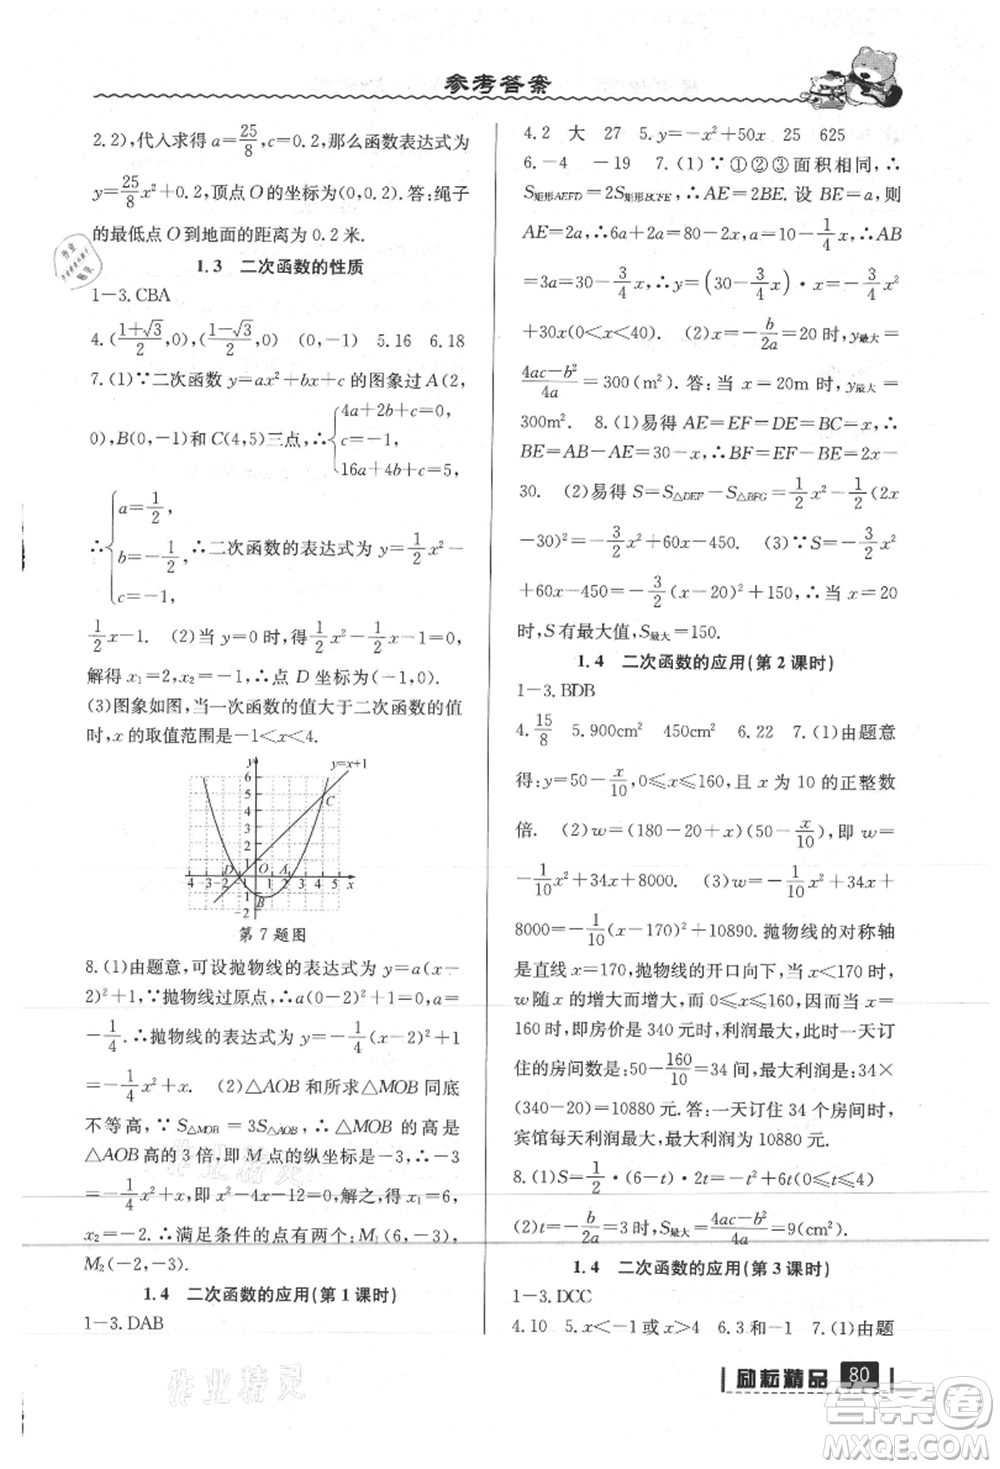 参考答案
2.2),代入求得 a=25/8,c=0.2,那么函数表达式为
y=25/8x²+0.2,顶点 O 的坐标为(0,0.2).答:绳子
的最低点 O 到地面的距离为 0.2 米.
1.3 二次函数的性质
1-3.CBA
4.((1+√3)/2,0),((1-√3)/2,0) (0,-1) 5.16 6.18
7.(1)∵二次函数 y=ax²+bx+c 的图象过 A(2,
0),B(0,-1)和 C(4,5)三点,∴{4a+2b+c=0, c=-1, 16a+4b+c=5,
∴{a=1/2, b=-1/2, c=-1, ∴二次函数的表达式为 y=1/2x²-
1/2x-1. (2)当 y=0 时,得1/2x²-1/2x-1=0,
解得 x₁=2,x₂=-1,∴点 D 坐标为(-1,0).
(3)图象如图,当一次函数的值大于二次函数的值
时,x 的取值范围是-1<x<4.
y y=x+1
6
5
4
3
2
1
C
D O A
-4 -3 -2 1 2 3 4 5 x
B
-2
第 7 题图
8.(1)由题意,可设抛物线的表达式为 y=a(x-
2)²+1,∵抛物线过原点,∴a(0-2)²+1=0,a=
-1/4,∴抛物线的表达式为 y=-1/4(x-2)²+1
=-1/4x²+x. (2)△AOB 和所求△MOB 同底
不等高,∵S△MOB=3S△AOB,∴△MOB 的高是
△AOB 高的 3 倍,即 M 点的纵坐标是-3,∴-3
=-1/4x²+x,即 x²-4x-12=0,解得 x₁=6,
x₂=-2,∴满足条件的点有两个:M₁(6,-3),
M₂(-2,-3).
1.4 二次函数的应用(第 1 课时)
1-3.DAB
4.2 大 27 5.y=-x²+50x 25 625
6.-4 -19 7.(1)∵①②③面积相同,∴
S矩形AEFD=2S矩形BCFE,∴AE=2BE.设 BE=a,则
AE=2a,∴6a+2x=80,∴2a=20-1/4x·2,
3a=30-3/4x,∴y=(30-3/4x)·x=-3/4x²
+30x(0<x<40). (2)x=-b/2a=20 时,y最大=
(4ac-b²)/4a=300(m²).答:当 x=20m 时,y最大=
300m². 8.(1)易得 AE=EF=DE=BC=x,∴
BE=AE-AB=x-30,∴BF=EF-BE=2x-
30. (2)易得 S=S△DEF-S△BFG=1/2x²-1/2(2x
-30)²=-3/2x²+60x-450. (3)∵S=-3/2x²
+60x-450=-3/2(x-20)²+150,∴当 x=20
时,S 有最大值,S最大=150.
1.4 二次函数的应用(第 2 课时)
1-3.BDB
4.15/8 5.900cm² 450cm² 6.22 7.(1)由题意
得:y=50-x/10,0≤x≤160,且 x 为 10 的正整数
倍. (2)w=(180-20+x)(50-x/10),即 w=
-1/10x²+34x+8000. (3)w=-1/10x²+34x+
8000=-1/10(x-170)²+10890.抛物线的对称轴
是直线 x=170,抛物线的开口向下,当 0≤x≤160 时,
w 随 x 的增大而增大,又 0≤x≤160,∴当 x=
160 时,即房价是 340 元时,利润最大,此时一天订
住的房间数是:50-160/10=34(间),最大利润是:34×
(340-20)=10880 元.答:一天订住 34 个房间时,
宾馆每天利润最大,最大利润为 10880 元.
8.(1)S=1/2·(6-t)·2t=-t²+6t(0≤t≤4)
(2)t=-b/2a=3 时,S最大=(4ac-b²)/4a=9(cm²).
1.4 二次函数的应用(第 3 课时)
1-3.DCC
4.10 5.x<-1 或 x>4 6.3 和-1 7.(1)由题
励耘精品 80
作业精灵
作业精灵
答案卷
MXQE.COM